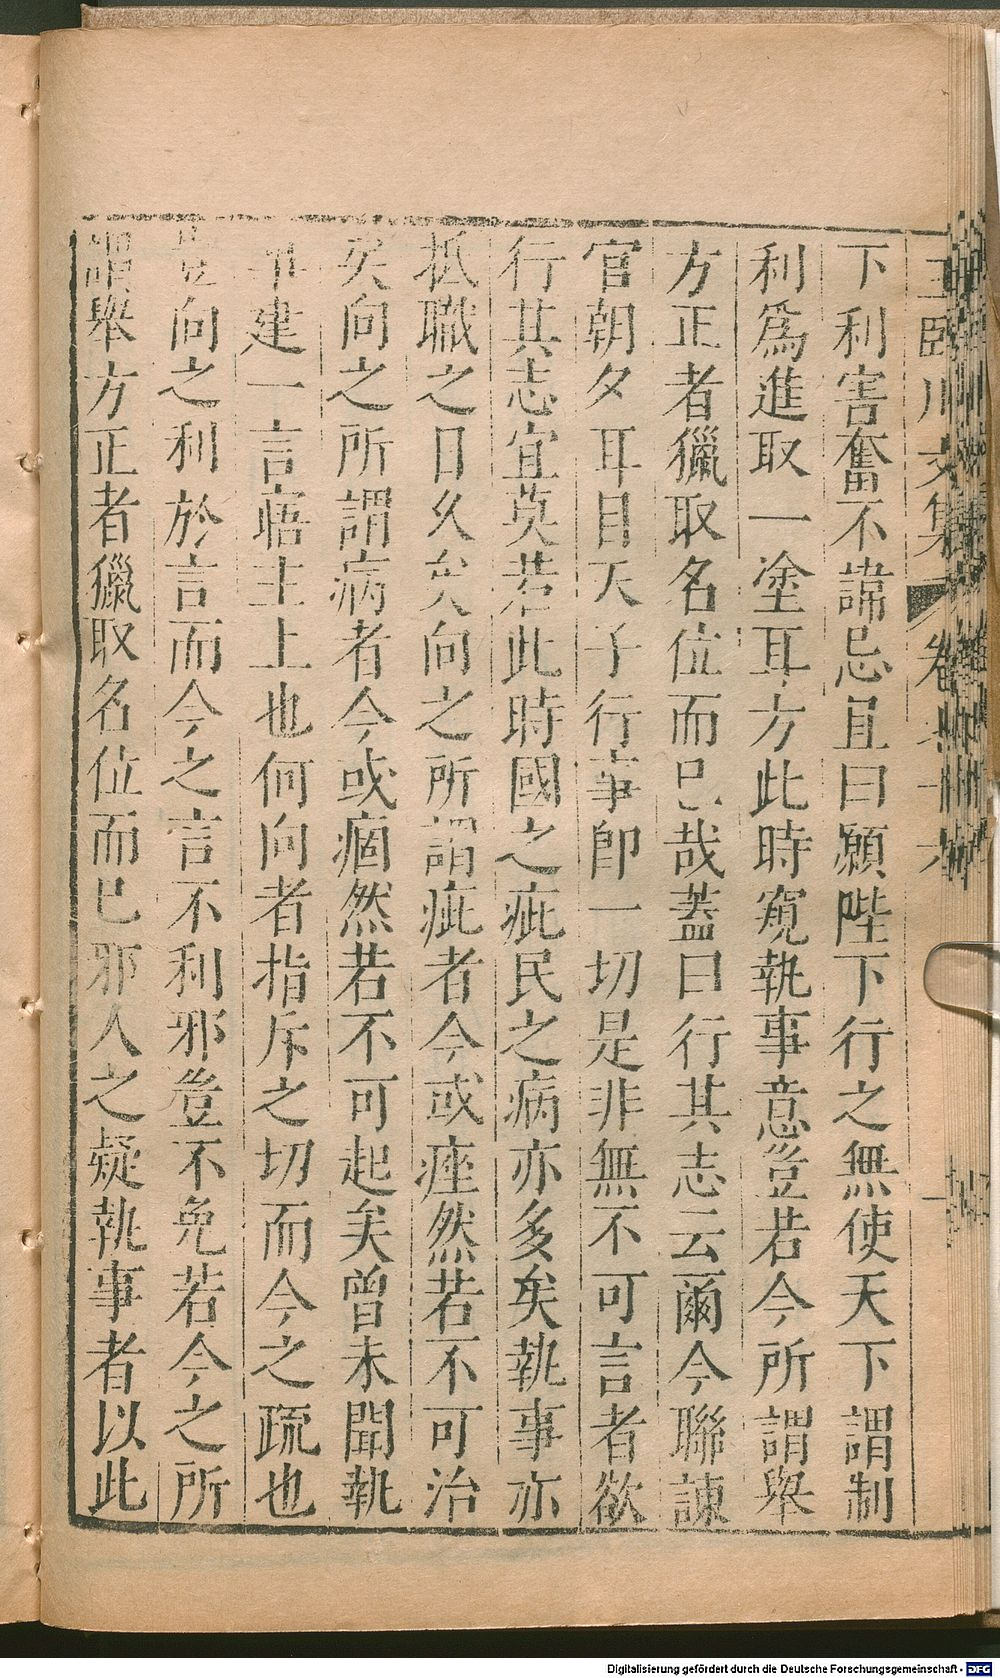 王臨川文集 卷七十六
下利害奮不諱忌且曰願陛下行之無使天下謂制
利爲進取一塗耳方此時窺執事意豈若今所謂舉
方正者獵取名位而已哉蓋曰行其志云爾今聯諫
官朝夕耳目天子行事卽一切是非無不可言者欲
行其志宜莫若此時國之疵民之病亦多矣執事亦
抵職之日久矣向之所謂疵者今或痤然若不可治
矣向之所謂病者今或痼然若不可起矣曾未聞執
事建一言寤主上也何向者指斥之切而今之疏也
豈向之利於言而今之言不利邪豈不免若今之所
謂舉方正者獵取名位而已邪人之疑執事者以此
Digitalisierung gefördert durch die Deutsche Forschungsgemeinschaft - DFG